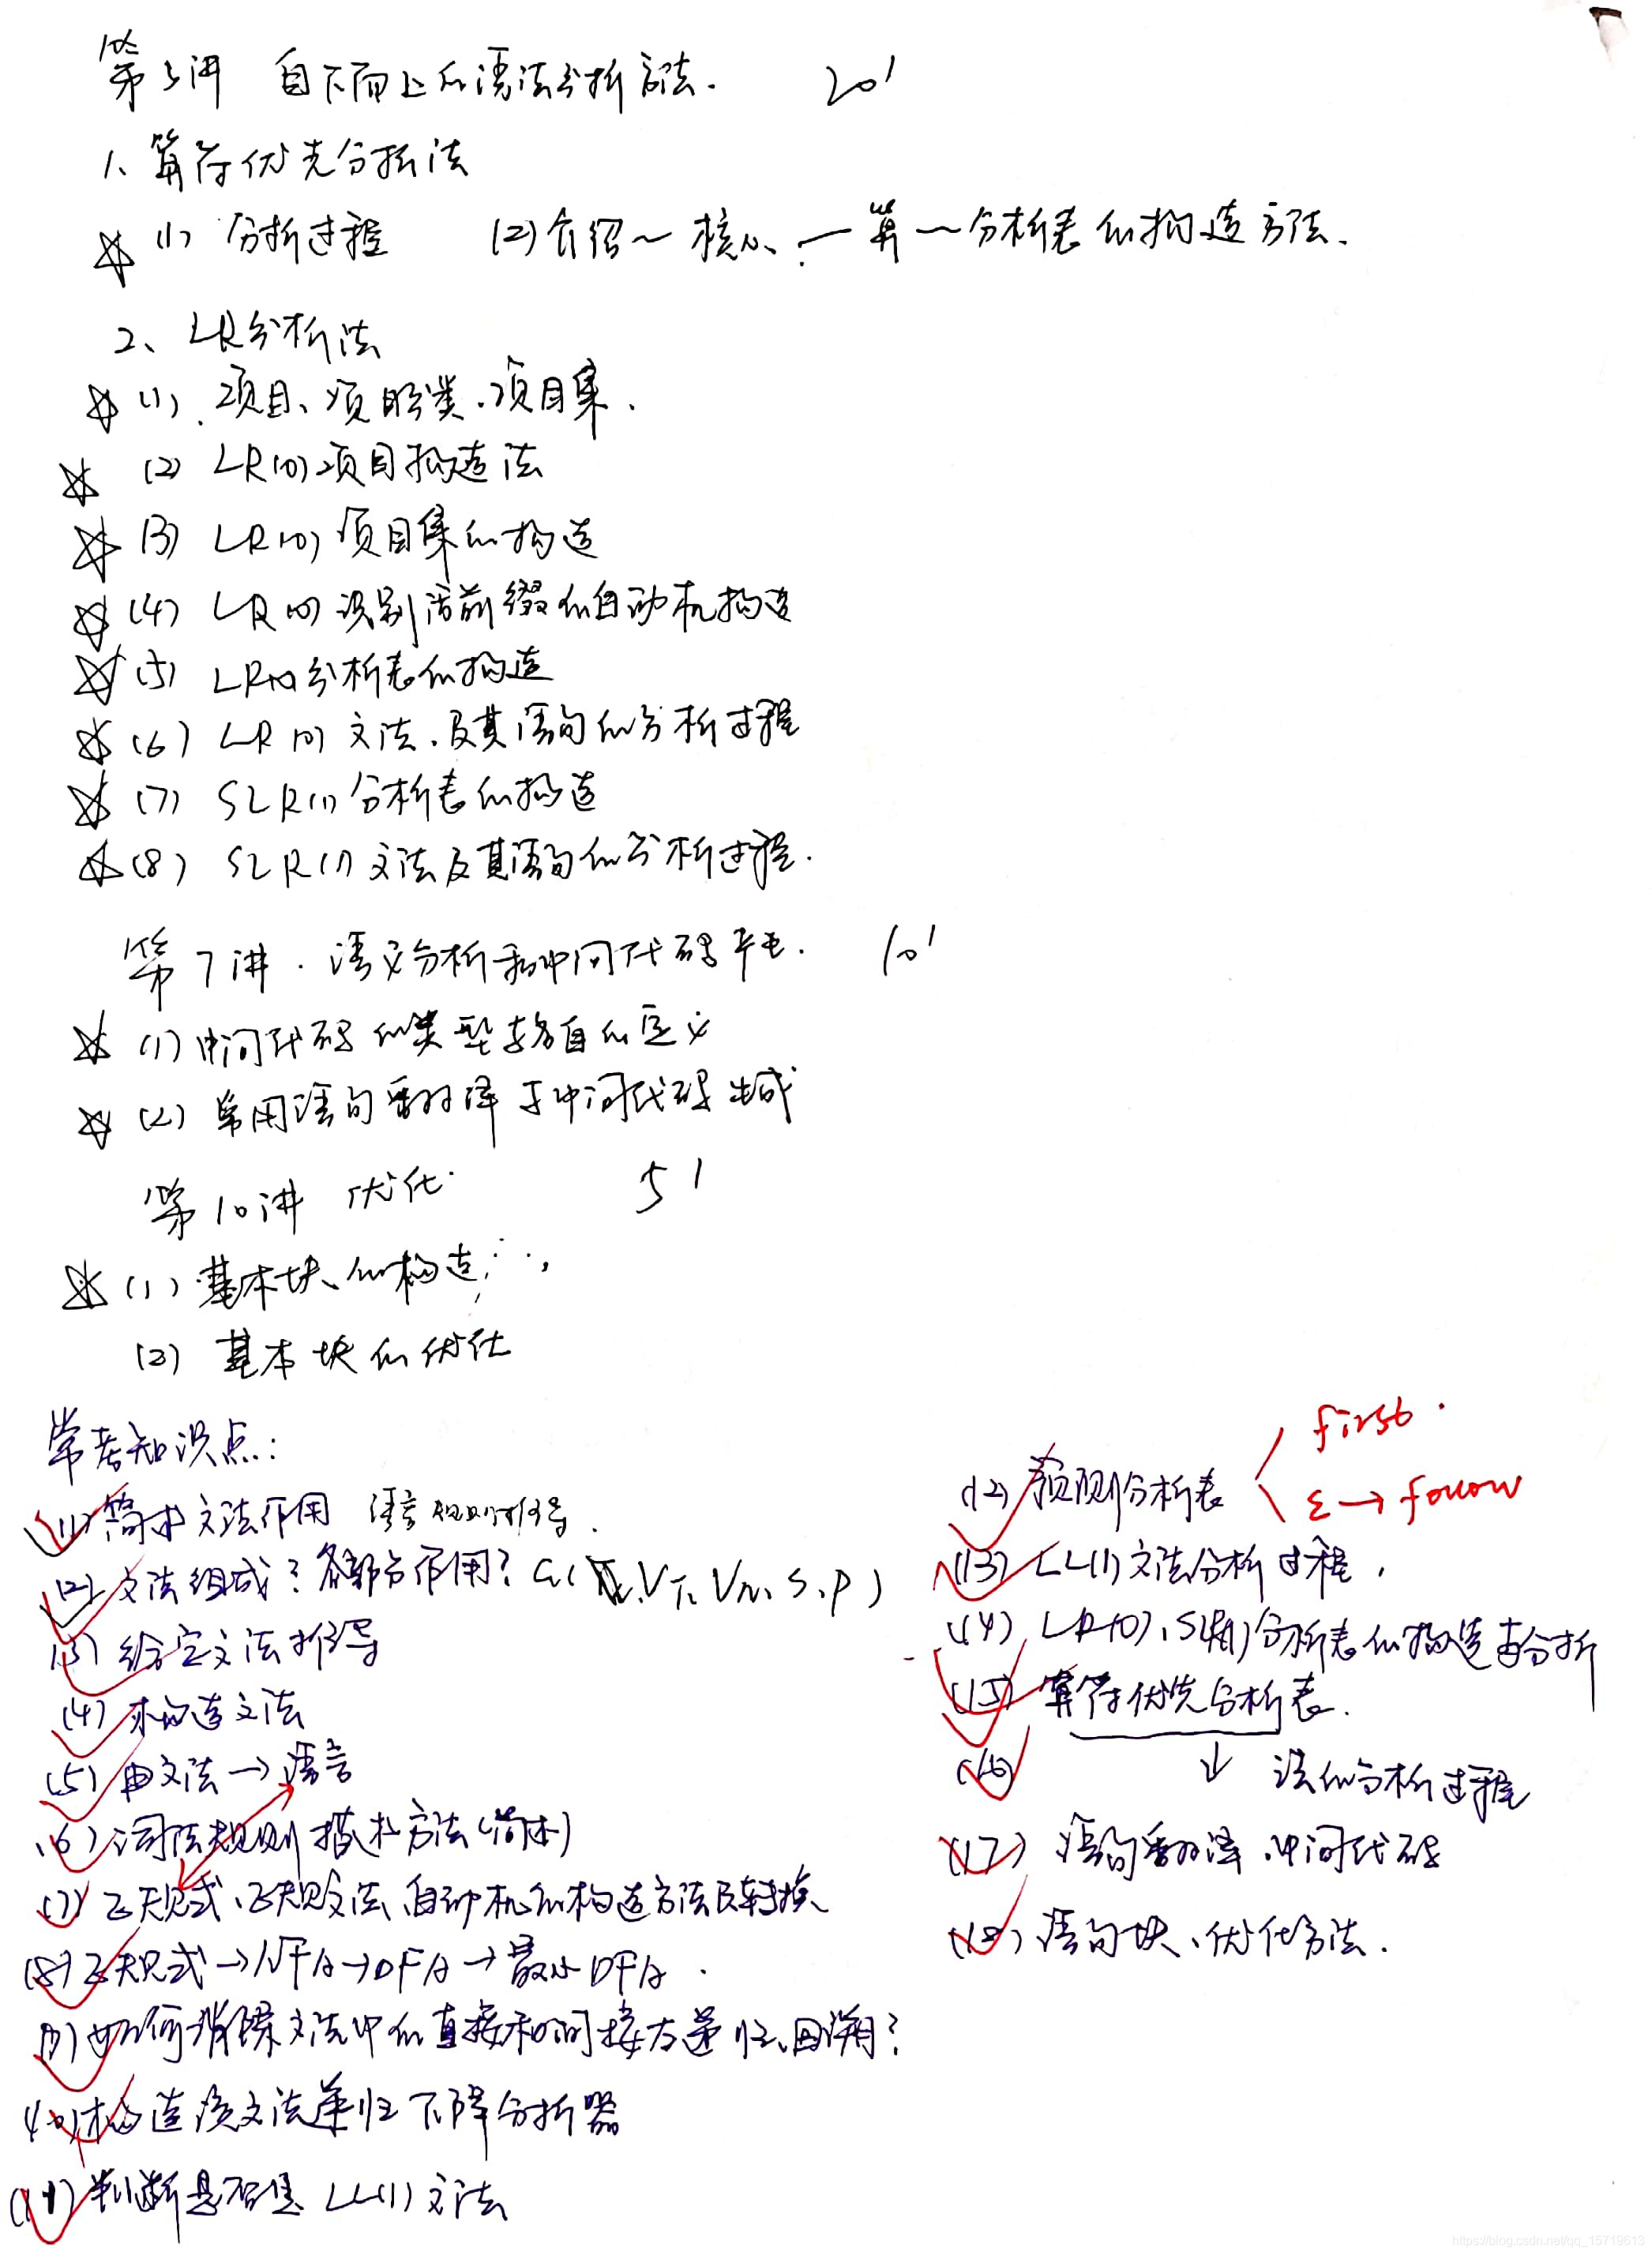 第5讲 自下而上的语法分析方法. 20'
1、算符优先分析法
☆ (1) 分析过程 (2) 介绍～核心、一算～分析表的构造方法.
2、LR分析法
☆ (1). 项目、项目分类、项目集.
☆ (2) LR(0)项目构造法
☆ (3) LR(0)项目集的构造
☆ (4) LR(0)识别活前缀的自动机构造
☆ (5) LR(0)分析表的构造
☆ (6) LR(0)文法、及其语句的分析过程
☆ (7) SLR(1)分析表的构造
☆ (8) SLR(1)文法及其语句的分析过程.
第7讲. 语义分析和中间代码产生. 10'
☆ (1) 中间代码的类型与各自的定义
☆ (2) 常用语句翻译与中间代码生成
第10讲 优化. 5'
☆ (1) 基本块的构造
(2) 基本块的优化
常考知识点:
(1) 简述文法作用 语言规则推导.
(2) 文法组成？各部分作用？G(VT、VN、S、P)
(3) 给定文法推导
(4) 构造文法
(5) 由文法→语言
(6) 词法规则描述方法(简述)
(7) 正规式、正规文法、自动机的构造方法及转换
(8) 正规式→NFA→DFA→最小DFA.
(9) 如何消除文法中的直接和间接左递归、回溯？
(10) 构造该文法递归下降分析器
(11) 判断是否是LL(1)文法
(12) 预测分析表 first.
ε→follow
(13) LL(1)文法分析过程.
(14) LR(0)、SLR(1)分析表的构造与分析
(15) 算符优先分析表.
(16) ↓ 该的分析过程
(17) 语句翻译、中间代码
(18) 语句块、优化方法.
https://blog.csdn.net/qq_15719613